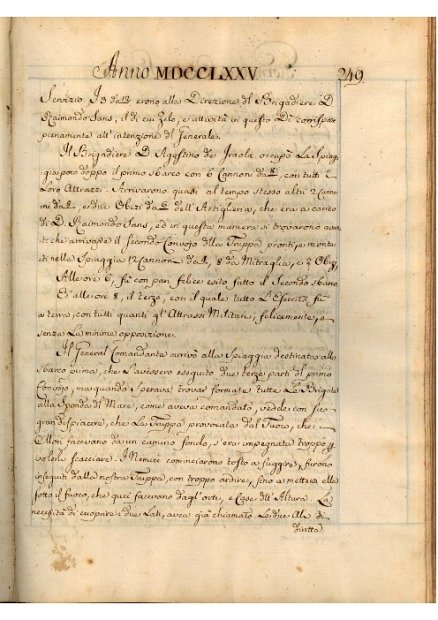 Anno MDCCLXXV
249
Servizio. I 3 da erono alla Direzione dl Brigadiere D.
Raimondo Sans, il di cui Zelo, e attività in questo Dì corrispose
pienamente all' intenzione dl Generale.
Il Brigadiere D. Agostino de occupò La Spiag-
gia poco doppo il primo sbarco con 6 Cannoni da 8, con tutti i
Loro Attrazzi. Arrivarono quasi al tempo stesso altri 2 Canno-
ni da e due Obizi da dell' Artiglieria, che era a carico
di D. Raimondo Sans, ed in questa maniera si trovarono avan-
ti che arrivasse il secondo Convojo dlla Truppa pronti, e monta-
ti nella Spiaggia 12 Cannoni da 8 da Mitraglia, e 2 Obizi,
Alle ore 6, fù con pari felice esito fatto il Secondo sbarco
Ed alle ore 8, il terzo, con il quale tutto L'Esercito fù
a terra, con tutti quanti gl' Attrassi Militari, felicemente, e
senza La minima opposizione.
Il General Comandante arrivò alla Spiaggia destinata allo
sbarco prima, che L'avessero eseguito due terze parti dl primo
Convojo, ma quando sperava trovar formate tutte Le Brigate
alla Sponda dl Mare, come aveva comandato, vedde con suo
gran dispiacere, che La Truppa provocata dal Fuoco, che i
Mori facevano da un camino fondo, s'era impegnata troppo p
volerli scacciare. I Nemici cominciarono tosto a fuggire, furono
inseguiti dalla nostra Truppa, con troppo ardire, sino a mettersi alla
sotto il fuoco, che quei facevano dagl' orti, e Case dll' Altura. La
necessità di cuoprire i due Lati, avea già chiamato Le due Ale di
diritta